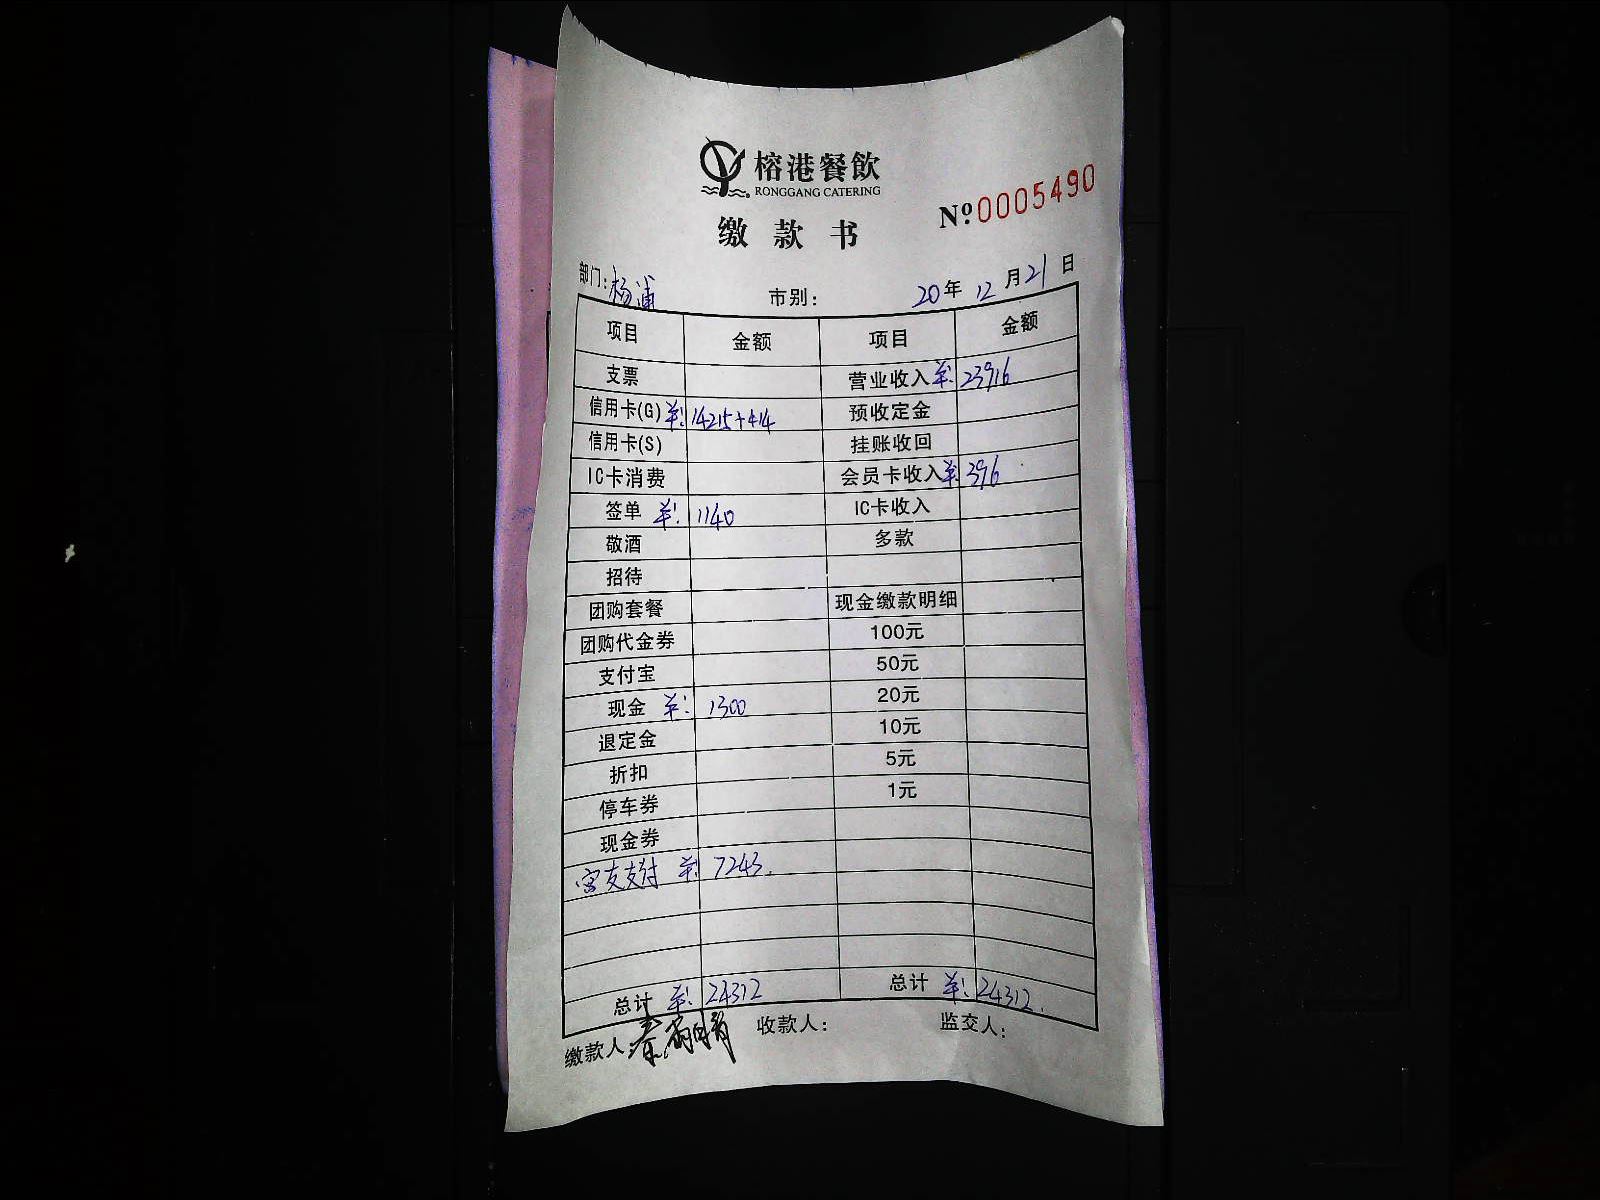 榕港餐飲
RONGGANG CATERING
缴款书
№:0005490
部门:杨浦 市别: 20年12月21日
项目 金额 项目 金额
支票 营业收入 羊: 23916
信用卡(G) 羊: 14215+414 预收定金
信用卡(S) 挂账收回
IC卡消费 会员卡收入 羊: 396
签单 羊: 1140 IC卡收入
敬酒 多款
招待
团购套餐 现金缴款明细
团购代金券 100元
支付宝 50元
现金 羊: 1300 20元
退定金 10元
折扣 5元
停车券 1元
现金券
支付 羊: 7243.
总计 羊: 24312 总计 羊: 24312.
缴款人: 秦 收款人: 监交人: